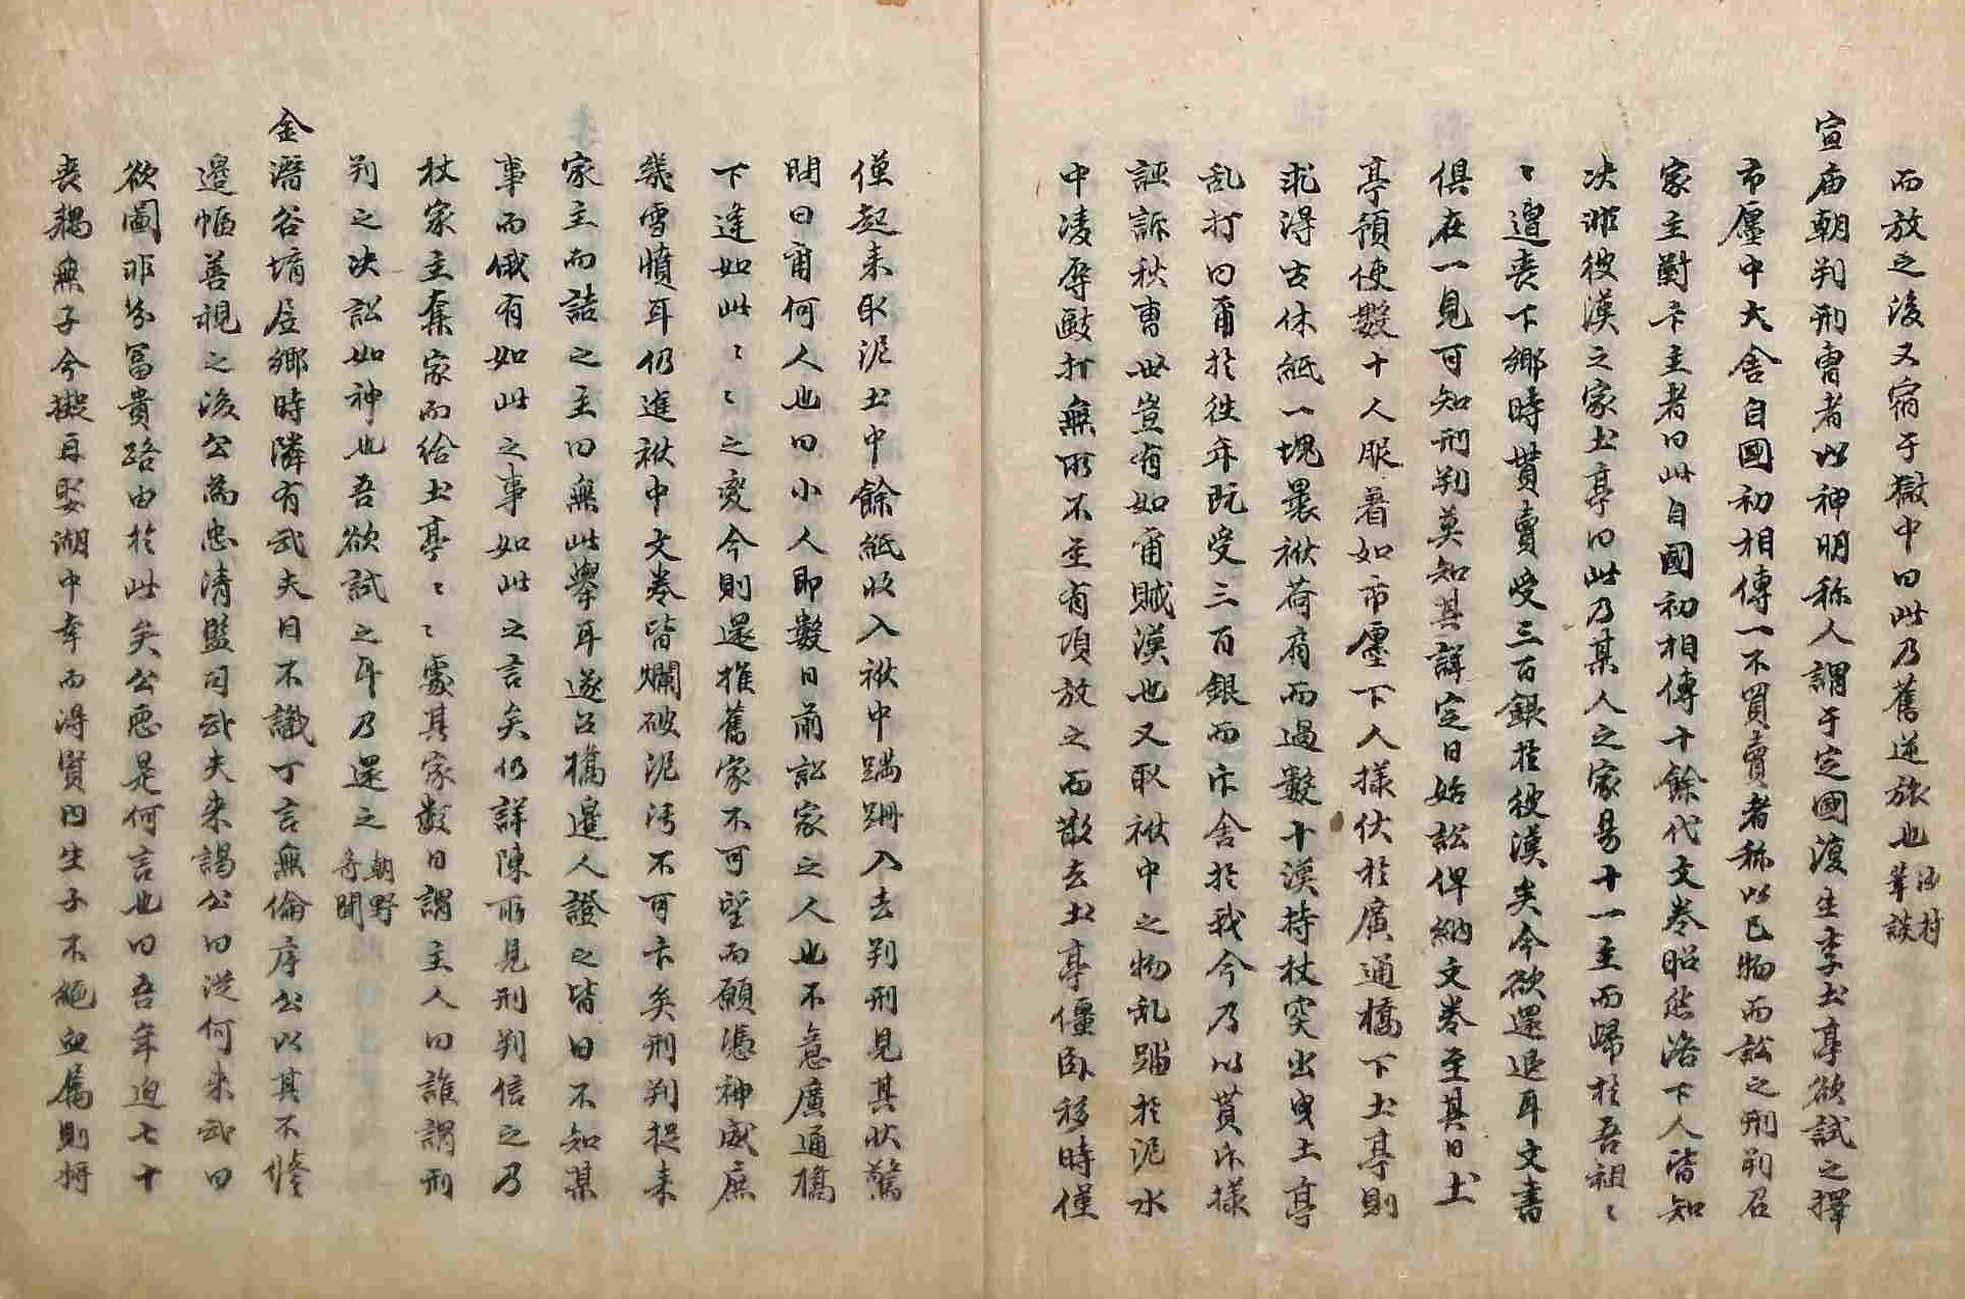 而放之後又宿于獄中曰此乃舊逆旅也 筆談
宣庙朝判刑曺者以神明称人謂于定國復生李土亭欲試之擇
市廛中大舍自國初相傳一不買賣者称以己物而訟之刑判召
家主對卞主者曰此自國初相傳十餘代文卷昭然洛下人皆知
决非彼漢之家土亭曰此乃某人之家易十一主而歸於吾祖〻
〻遭丧下鄉時貰賣受三百銀於彼漢矣今欲還退耳文書
俱在一見可知刑判莫知其詳定日始訟俾納文卷至其日土
亭預使數十人服着如市廛下人樣伏於廣通橋下土亭則
求得古休紙一塊裹袱荷肩而過數十漢持杖突出曳土亭
乱打曰爾於徃年既受三百銀而斥舍於我今乃以貰斥樣
誣訴秋曺世豈有如爾賊漢也又取袱中之物乱踏於泥水
中凌辱敺打無所不至有頃放之而散去土亭僵臥移時僅
僅起来取泥土中餘紙收入袱中蹣跚入去判刑見其狀驚
問曰爾何人也曰小人即數日前訟家之人也不意廣通橋
下逢如此〻〻之変今則還推舊家不可望而願憑神威庶
幾雪憤耳仍進袱中文卷皆爛破泥汚不可卞矣刑判捉来
家主而詰之主曰無此擧耳遂召橋邊人證之皆曰不知某
事而俄有如此之事如此之言矣仍詳陳所見刑判信之乃
杖家主奪家而給土亭〻〻處其家數日謂主人曰誰謂刑
判之决訟如神也吾欲試之耳乃還之 朝野奇聞
金潛谷堉居鄉時隣有武夫目不識丁言無倫序公以其不修
邊幅善視之後公為忠清監司武夫来謁公曰從何来武曰
欲圖非分冨貴路由於此矣公惡是何言也曰吾年迫七十
丧耦無子今擬再娶湖中幸而得賢閤生子不絶血屬則將